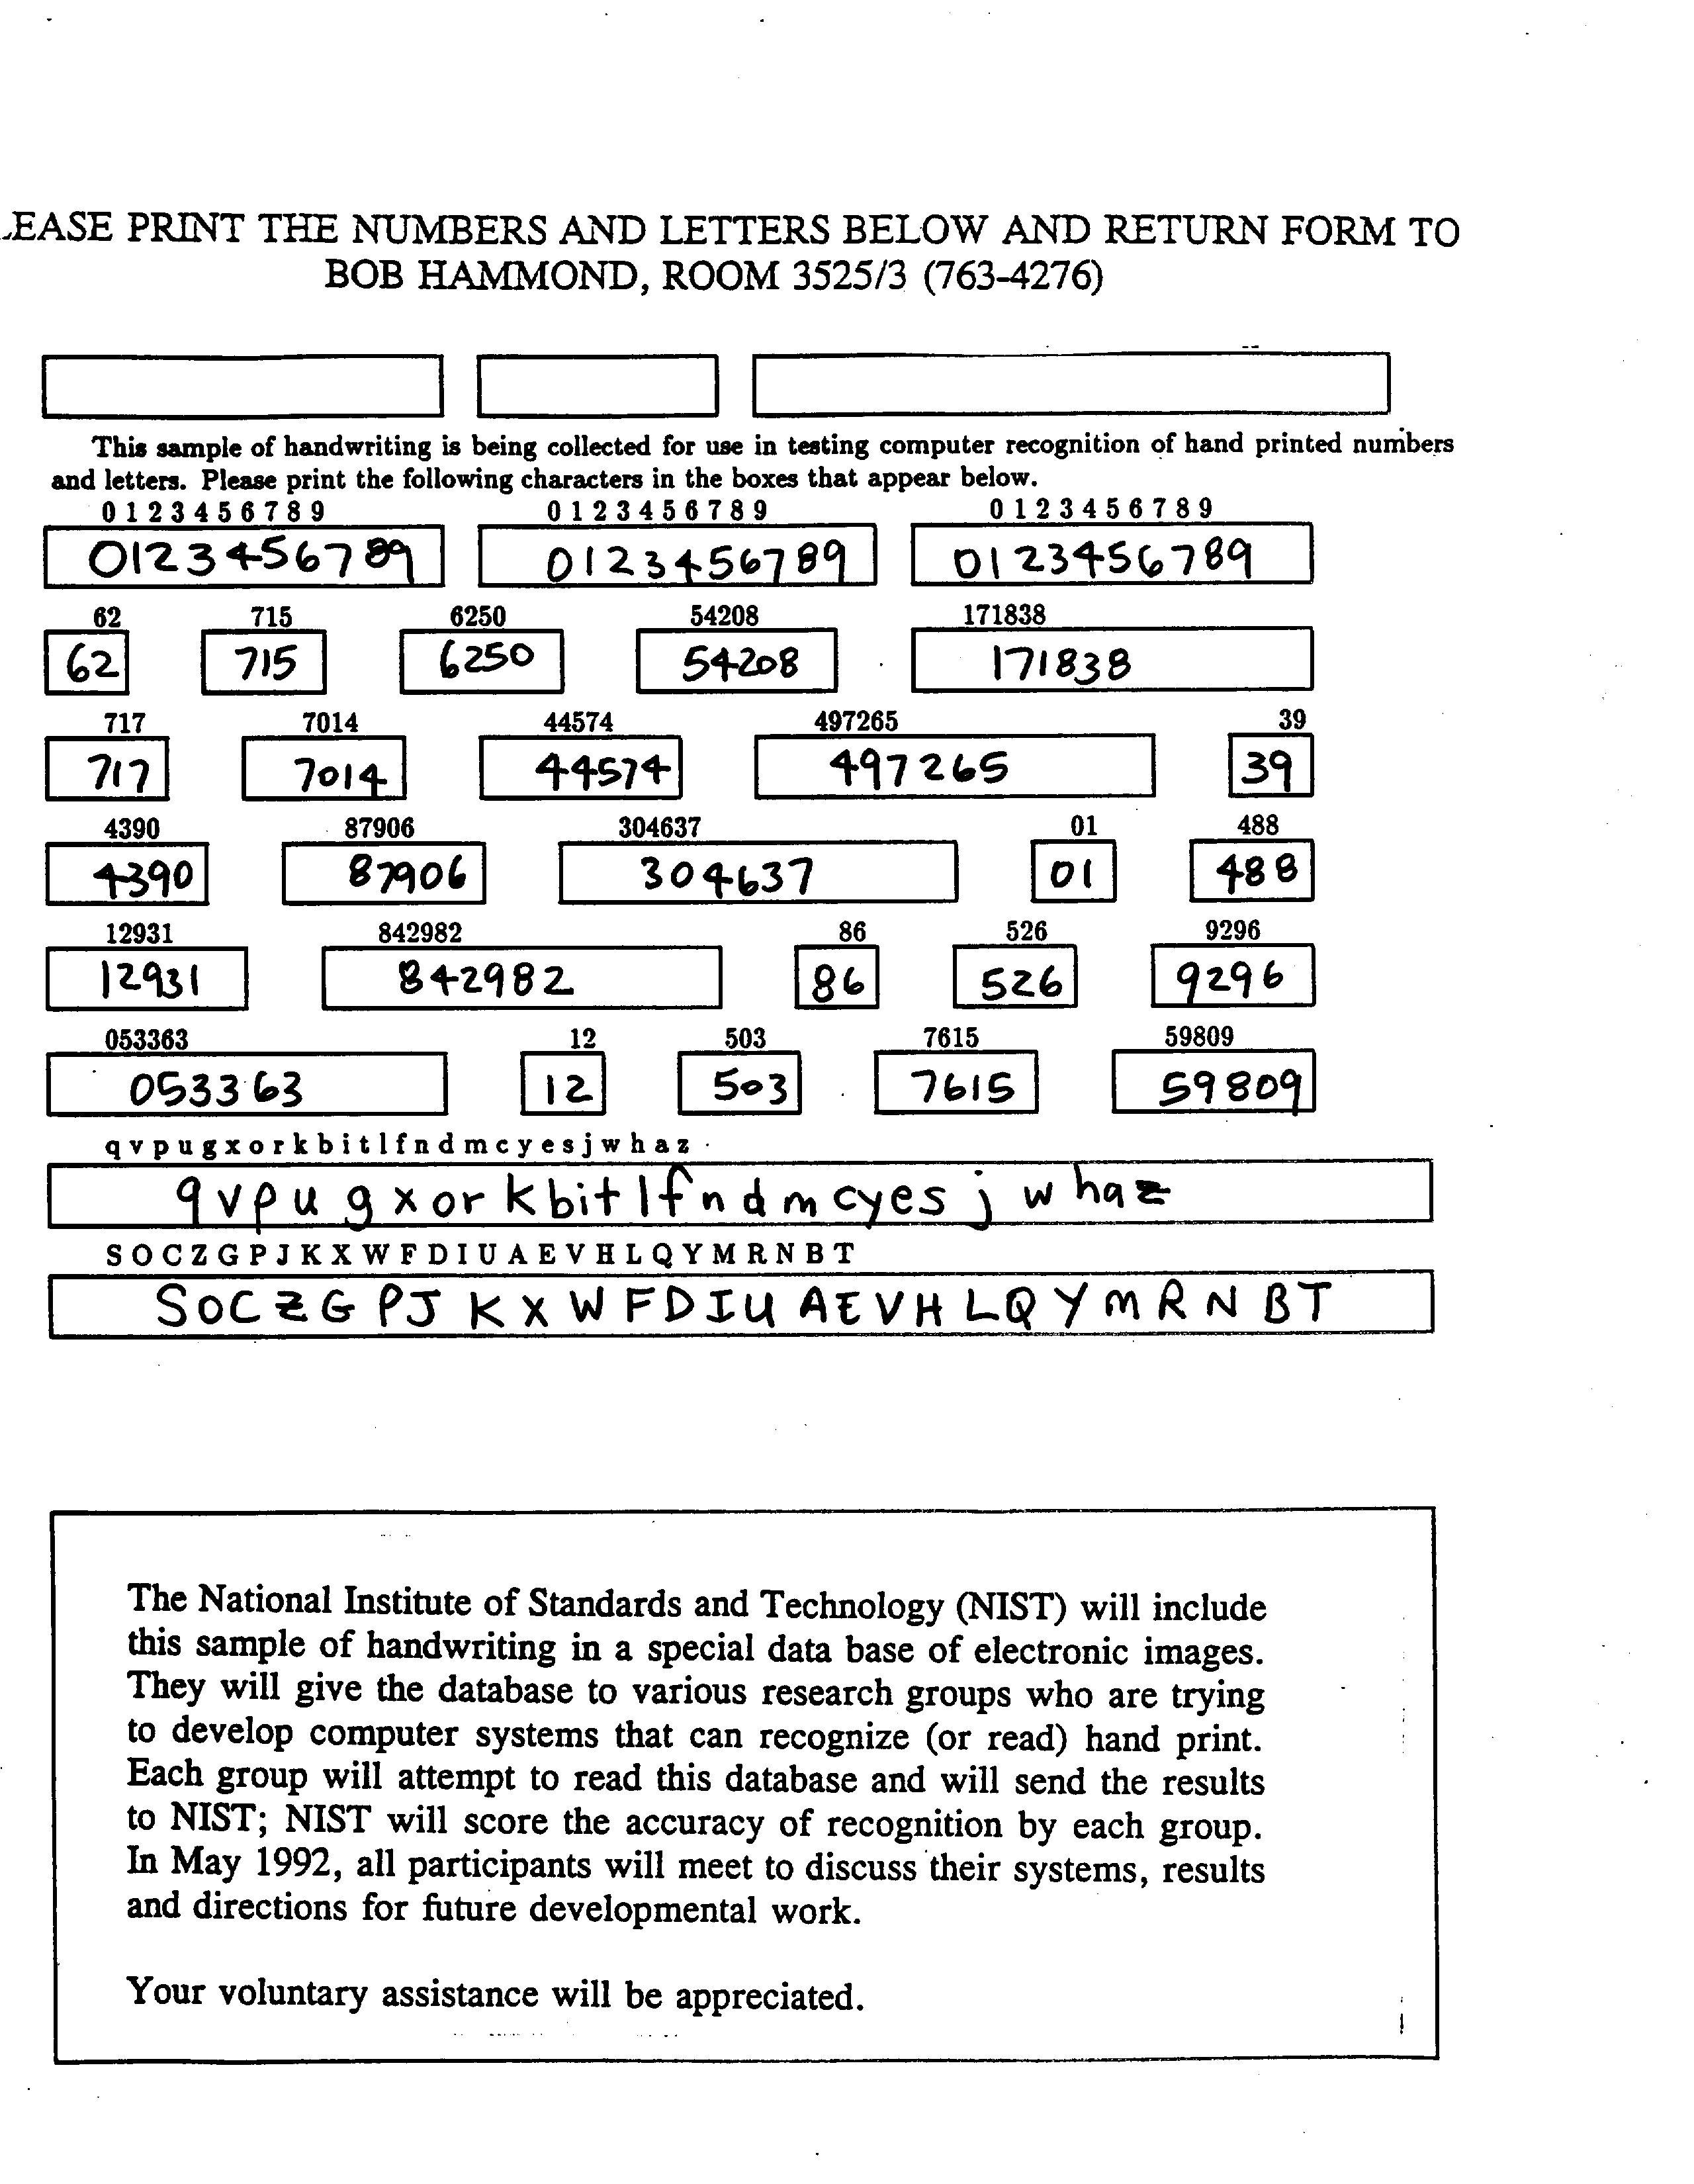 LEASE PRINT THE NUMBERS AND LETTERS BELOW AND RETURN FORM TO
BOB HAMMOND, ROOM 3525/3 (763-4276)
This sample of handwriting is being collected for use in testing computer recognition of hand printed numbers
and letters. Please print the following characters in the boxes that appear below.
0 1 2 3 4 5 6 7 8 9 0 1 2 3 4 5 6 7 8 9 0 1 2 3 4 5 6 7 8 9
0123456789 0123456789 0123456789
62 715 6250 54208 171838
62 715 6250 54208 171838
717 7014 44574 497265 39
717 7014 44574 497265 39
4390 87906 304637 01 488
4390 87906 304637 01 488
12931 842982 86 526 9296
12931 842982 86 526 9296
053363 12 503 7615 59809
053363 12 503 7615 59809
q v p u g x o r k b i t l f n d m c y e s j w h a z
q v p u g x o r k b i t l f n d m c y e s j w h a z
S O C Z G P J K X W F D I U A E V H L Q Y M R N B T
S O C Z G P J K X W F D I U A E V H L Q Y M R N B T
The National Institute of Standards and Technology (NIST) will include
this sample of handwriting in a special data base of electronic images.
They will give the database to various research groups who are trying
to develop computer systems that can recognize (or read) hand print.
Each group will attempt to read this database and will send the results
to NIST; NIST will score the accuracy of recognition by each group.
In May 1992, all participants will meet to discuss their systems, results
and directions for future developmental work.
Your voluntary assistance will be appreciated.